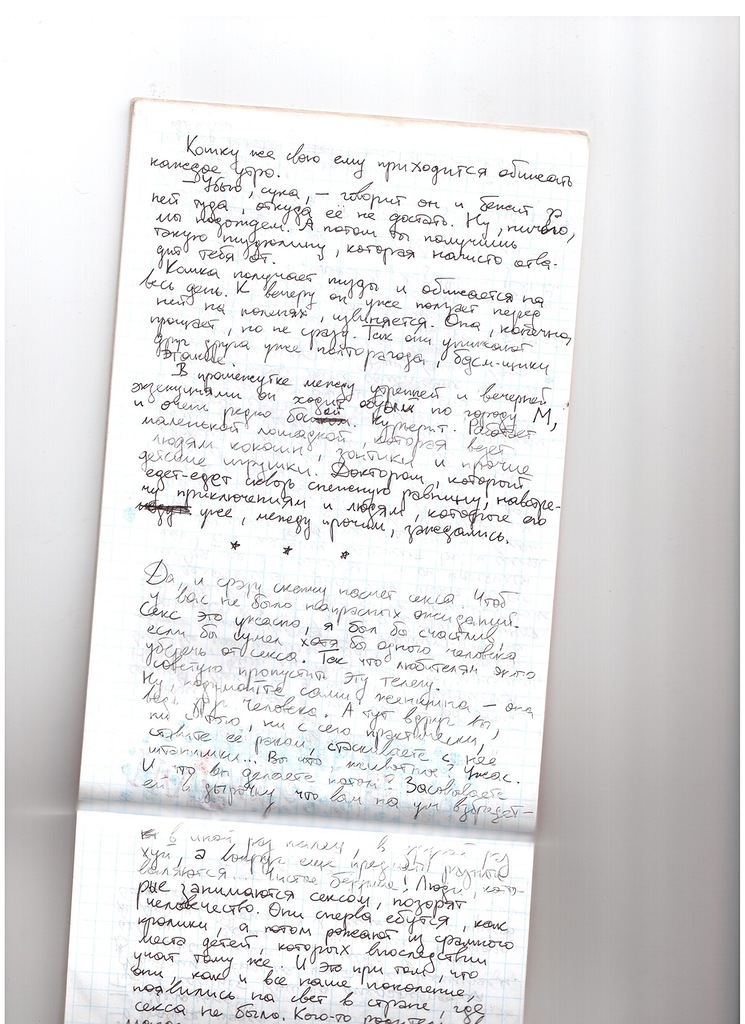 Кошку же свою ему приходится обижать
каждое утро.
– Убью, сука, – говорит он и бежит за
ней туда, откуда её не достать. Ну, ничего,
мы подождём. А потом ты получишь
такую пиздюлину, которая начисто отва-
дит тебя от.
Кошка получает пизды и обижается на
весь день. К вечеру он уже ползает перед
ней на коленях, извиняется. Она, конечно,
прощает, но не сразу. Так они унижают
друг друга уже полтора года, бдсм-щики
эдакие.
В промежутке между утренней и вечерней
экзекуциями он ходит по городу М,
и очень редко Курьерит. Работает
маленькой лошадкой, которая везёт
людям кокошн, зонтики и прочие
детские игрушки. Доктором, который
едет-едет сквозь снежную равнину, навстре-
чу приключениям и людям, которые его
уже, между прочим, заждались.
* * *
Да, и сразу скажу насчёт секса. Чтоб
у вас не было напрасных ожиданий.
Секс это ужасно, я был бы счастлив,
если бы сумел хотя бы одного человека
уберечь от секса. Так что любителям этого
советую пропустить эту телегу.
Ну, подумайте сами: женщина – она
ведь друг человека. А тут вдруг вы,
ни с того, ни с сего практически,
ставите её раком, стаскиваете с неё
штанишки... Вы что, животные? Ужас.
И что вы делаете потом? Засовываете
ей в дырочку что вам на ум взбредёт –
в иной раз палец, в другой раз
хуй, а вокруг ещё предметы разные
валяются... Чистое безумие! Люди, кото-
рые занимаются сексом, позорят
человечество. Они сперва ебутся, как
кролики, а потом рожают из срамного
места детей, которых впоследствии
учат тому же. И это при том, что
они, как и всё наше поколение,
появились на свет в стране, где
секса не было. Кого-то